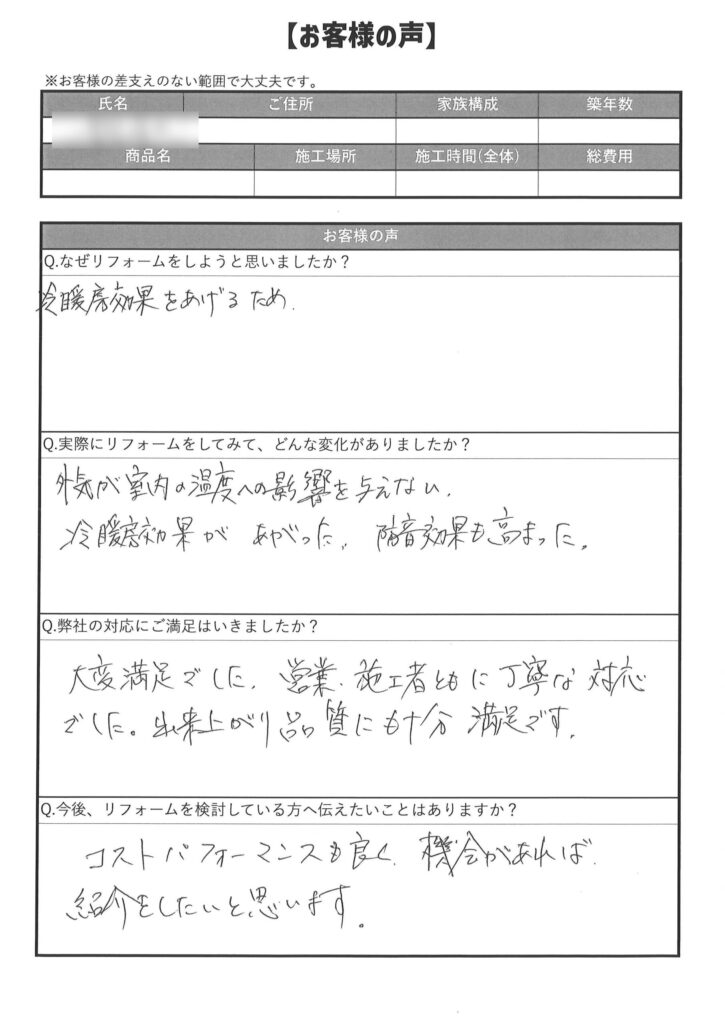 【お客様の声】
※お客様の差支えのない範囲で大丈夫です。
氏名 ご住所 家族構成 築年数
商品名 施工場所 施工時間(全体) 総費用
お客様の声
Q.なぜリフォームをしようと思いましたか？
冷暖房効果をあげるため.
Q.実際にリフォームをしてみて、どんな変化がありましたか？
外気が室内の温度への影響を与えない.
冷暖房効果が あがった. 防音効果も高まった。
Q.弊社の対応にご満足はいきましたか？
大変満足でした. 営業、施工者ともに丁寧な対応
でした。出来上がり品質にも十分 満足です.
Q.今後、リフォームを検討している方へ伝えたいことはありますか？
コストパフォーマンスも良く、機会があれば.
紹介をしたいと思います。